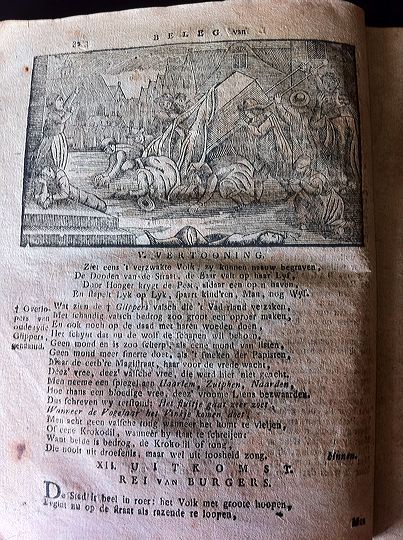 BELEG van
V. VERTOONING.
Ziet eens 't verzwakte Volk, zy konnen naauw begraven,
De Dooden van de Straat, de Baar valt op haar Lyf,
Door Honger krygt de Pest, aldaar een
En slagt Lyk op Lyk, spaart kind'ren, Man, nog Wyf.
Wat zien de † Glippers valsch die 't Vaderland verzaken,
Met schandig valsch bedrog zoo groot een oproer maken,
En ook noch op de daad met haren woeden doen,
Het schynt dat nu de wolf de schapen wil
Geen mond en is zoo scherp, als eene mond van
Geen mond meer smerte doet, als 't smeeken der Papisten,
Maar de eerb're Magistraat, haar voor de vrede wacht,
Deez' vree, deez' valsche vree, die werd hier niet geacht.
Men neeme een spiegel aan Haarlem, Zutphen, Naarden,
Hoe thans een bloedige vree, deez' vroome Liens bezwaarden.
Dus schreven wy certstond: Het fluitje gaat zeer zoet,
Wanneer de Vogelaar het Vinkje komen doet,
Men acht geen valsche tong wanneer het komt te vleijen,
Of eene Krokodil, wanneer hy staat te schreijen:
Want beide is bedrog, de Krokodil of tong,
Die nooit uit droefenis, maar wel uit loosheid zong.
binnen.
† Overloopers van
ouds
Glippers
genaamd.
XII. UITKOMST.
REI VAN BURGERS.
De Stad is heel in roer: het Volk met groote hoopen,
Begint nu op de straat als razende te loopen,